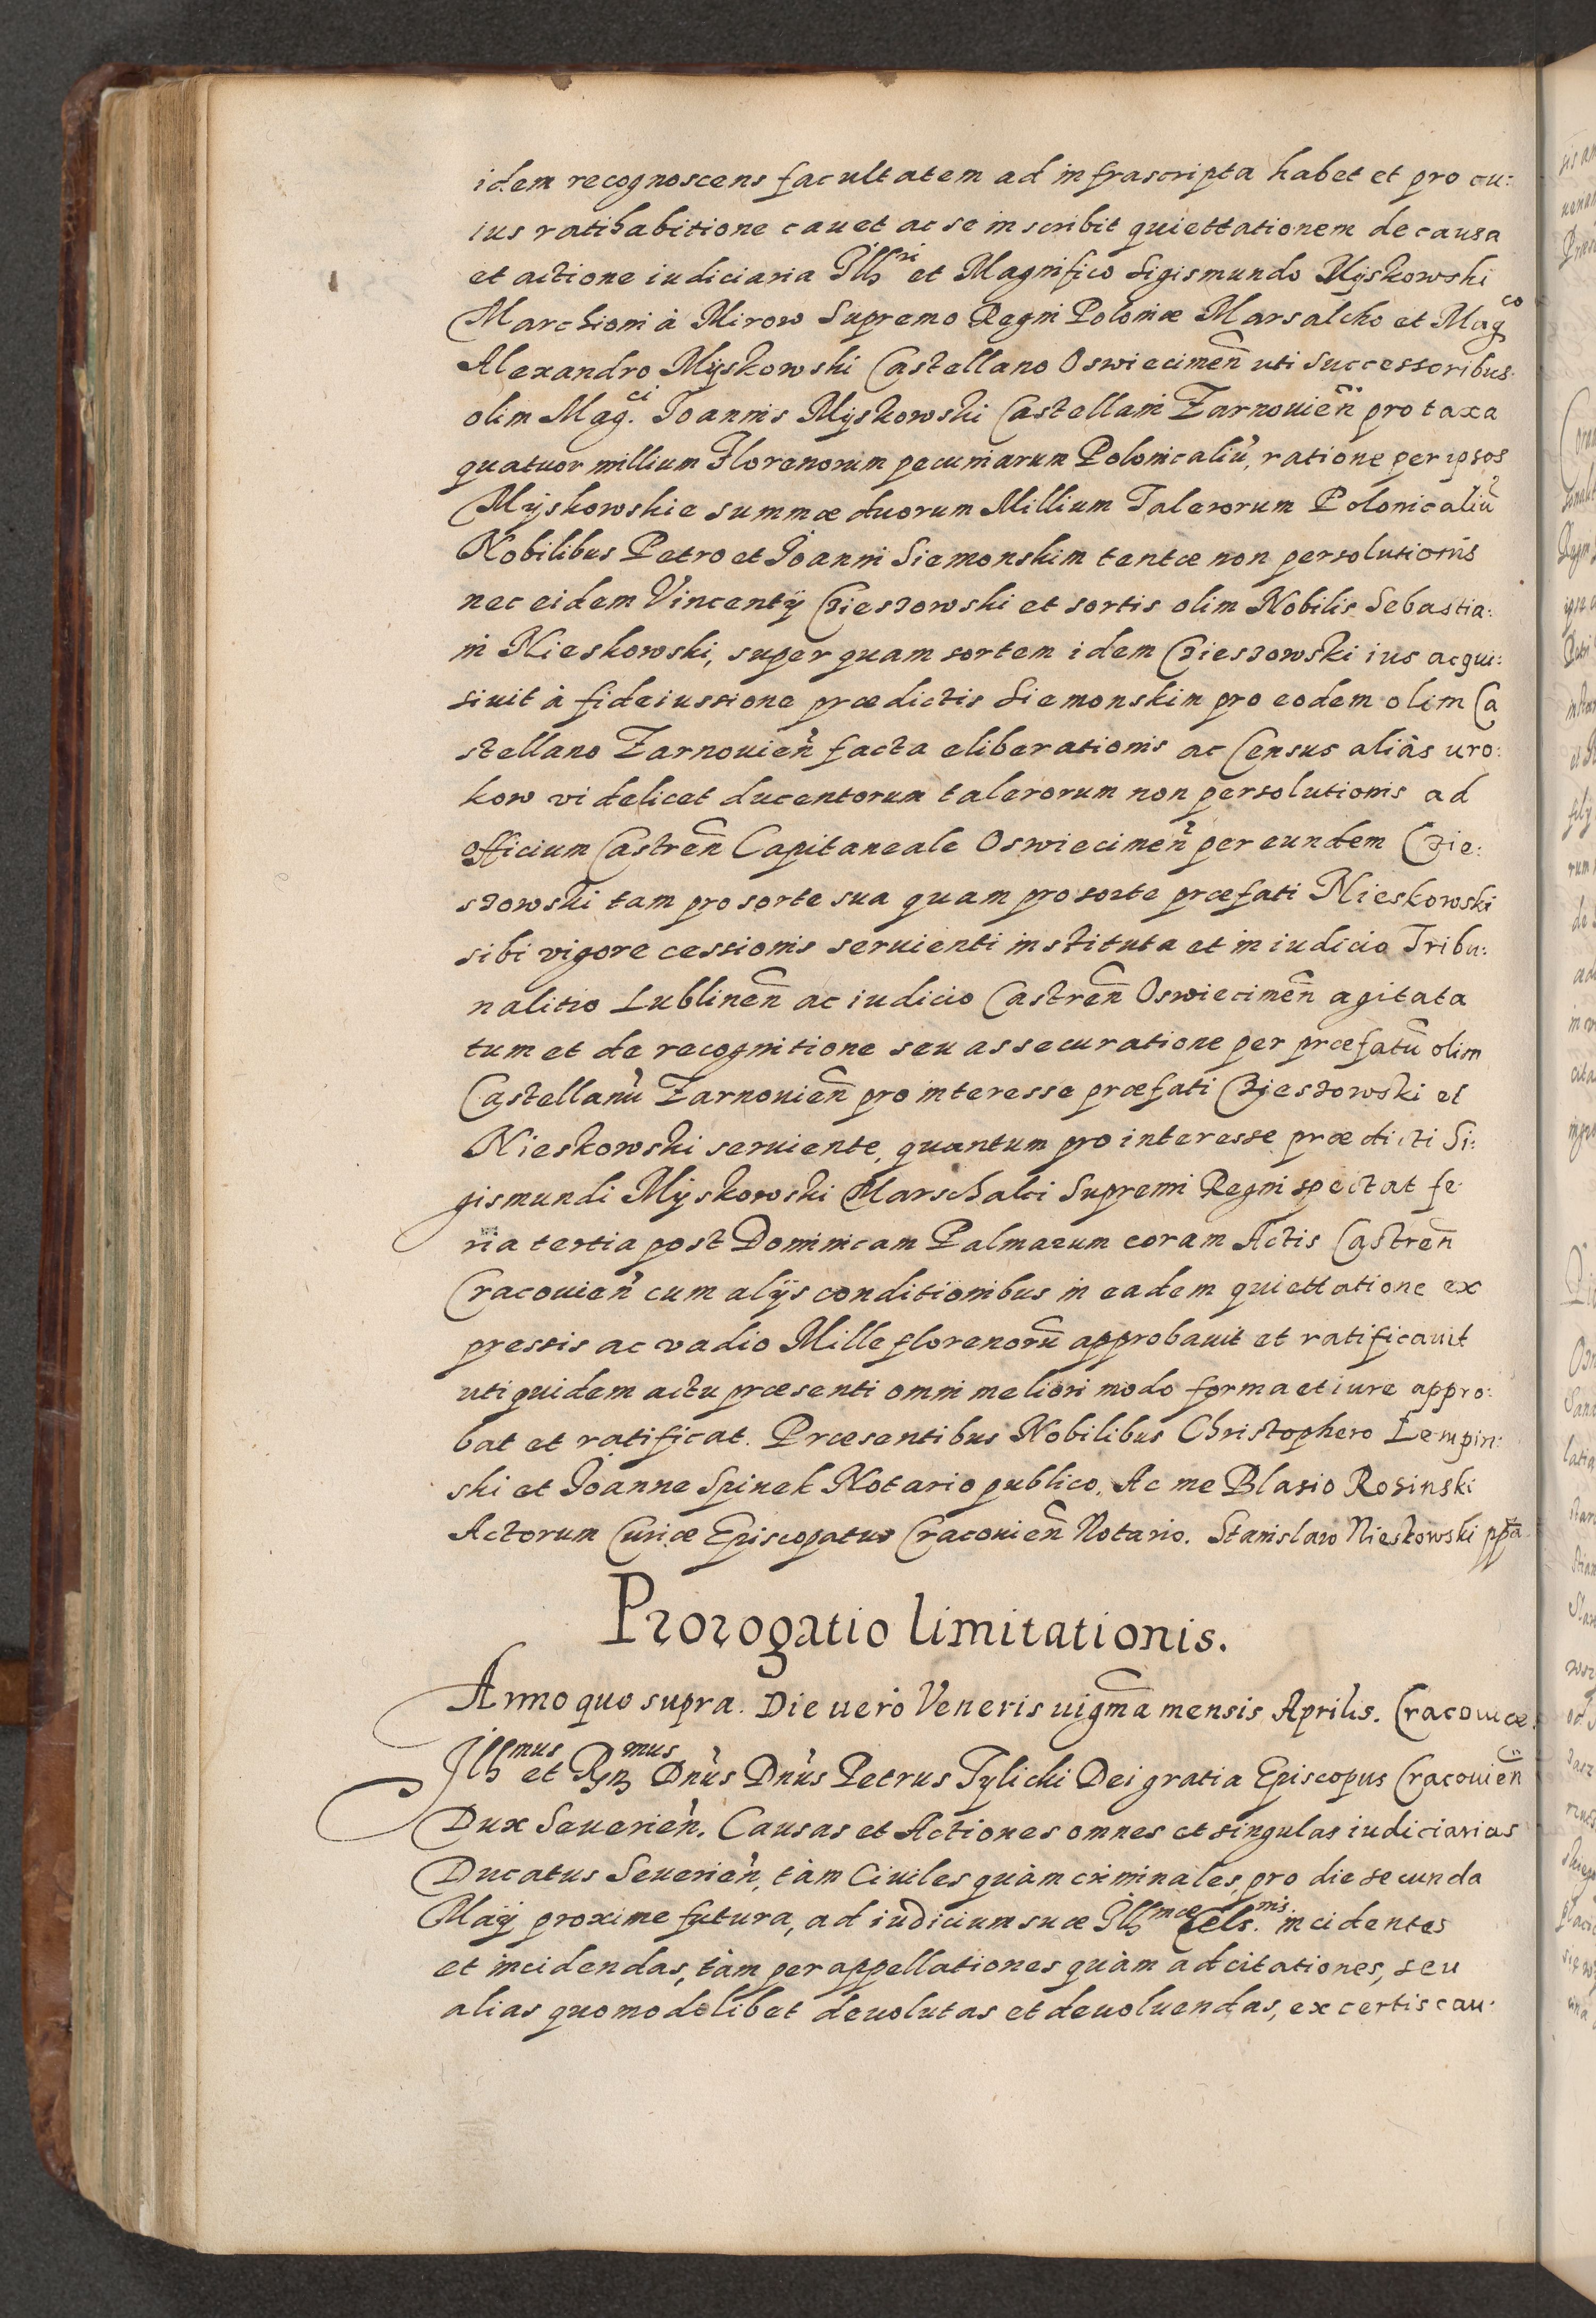 idem recognoscens facultatem ad infrascripta habet et pro cu:
ius ratihabitione cauet ac se inscribit quiettationem de causa
et actione iudiciaria Illri et Magnifico Sigismundo Myskowski
Marchioni à Mirow Supremo Regni Poloniæ Marsalcho et Magco
Alexandro Myskowski Castellano Oswiecimen̄ uti successoribus
olim Magci. Joannis Myskowski Castellani Zarnouien̄ pro taxa
quatuor millium Florenorum pecuniarum Polonicaliū, ratione per ipsos
Myskowskie summæ duorum Millium Talerorum Polonicaliū
Nobilibus Petro et Joanni Siemonskim tentæ non persolutionis
nec eidem Vincentÿ Czieszowski et sortis olim Nobilis Sebastia:
ni Nieskowski, super quam sortem idem Czieszowski ius acqui:
siuit à fideiussione prædictis Siemonskim pro eodem olim Ca
stellano Zarnouien̄ facta eliberationis ac Census aliàs uro:
kow videlicet ducentorum talerorum non persolutionis ad
officium Castren̄ Capitaneale Oswiecimen̄ per eundem Czie:
szowski tam pro sorte sua quam pro sorte præfati Nieskowski
sibi vigore cessionis seruienti instituta et in iudicio Tribu:
nalitio Lublinen̄ ac iudicio Castren̄ Oswiecimen̄ agitata
tum et de recognitione seu assecuratione per præfatū olim
Castellanū Zarnouien̄ pro interesse præfati Czieszowski et
Nieskowski seruiente, quantum pro interesse prædicti Si:
gismundi Myskowski Marschalci Supremi Regni spectat fe:
ria tertia post Dominicam Palmarum coram Actis Castren̄
Cracouien̄ cum alÿs conditionibus in eadem quiettatione ex
pressis ac vadio Mille florenorū approbauit et ratificauit
uti quidem actu præsenti omni meliori modo forma et iure appro:
bat et ratificat. Præsentibus Nobilibus Christophero Lempin:
ski et Joanne Spinek Notario publico. Ac me Blasio Rosinski
Actorum Curiæ Episcopatus Cracouien̄ Notario. Stanislaw Nieskowski ppa
Prorogatio limitationis.
Anno quo supra. Die uerò Veneris uigm̄a mensis Aprilis. Cracouiæ.
Illmus et Rndmus Dn̄us Dn̄us Petrus Tylicki Dei gratia Episcopus Cracouien̄
Dux Seuerien̄. Causas et Actiones omnes et singulas iudiciarias
Ducatus Seuerien̄, tàm Ciuiles quàm criminales, pro die secunda
Maÿ proxime futura, ad iudicium suæ Illmæ Celsnis. incidentes
et incidendas, tàm per appellationes quàm ad citationes, seu
alias quomodolibet deuolutas et deuoluendas, ex certis cau: